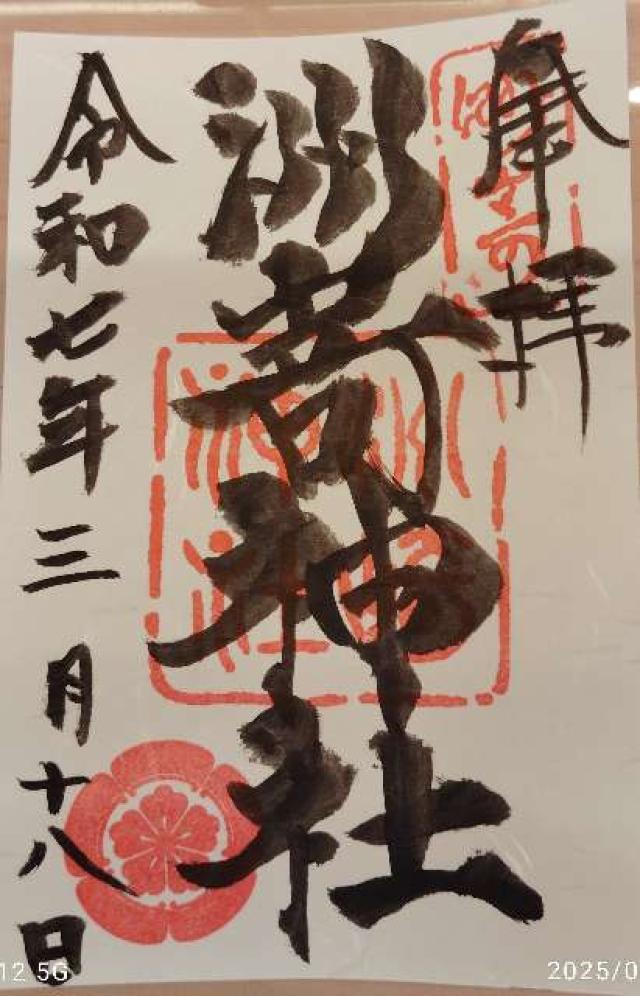 奉拝
洲嵜神社
令和七年三月十八日
12 5G
2025/0